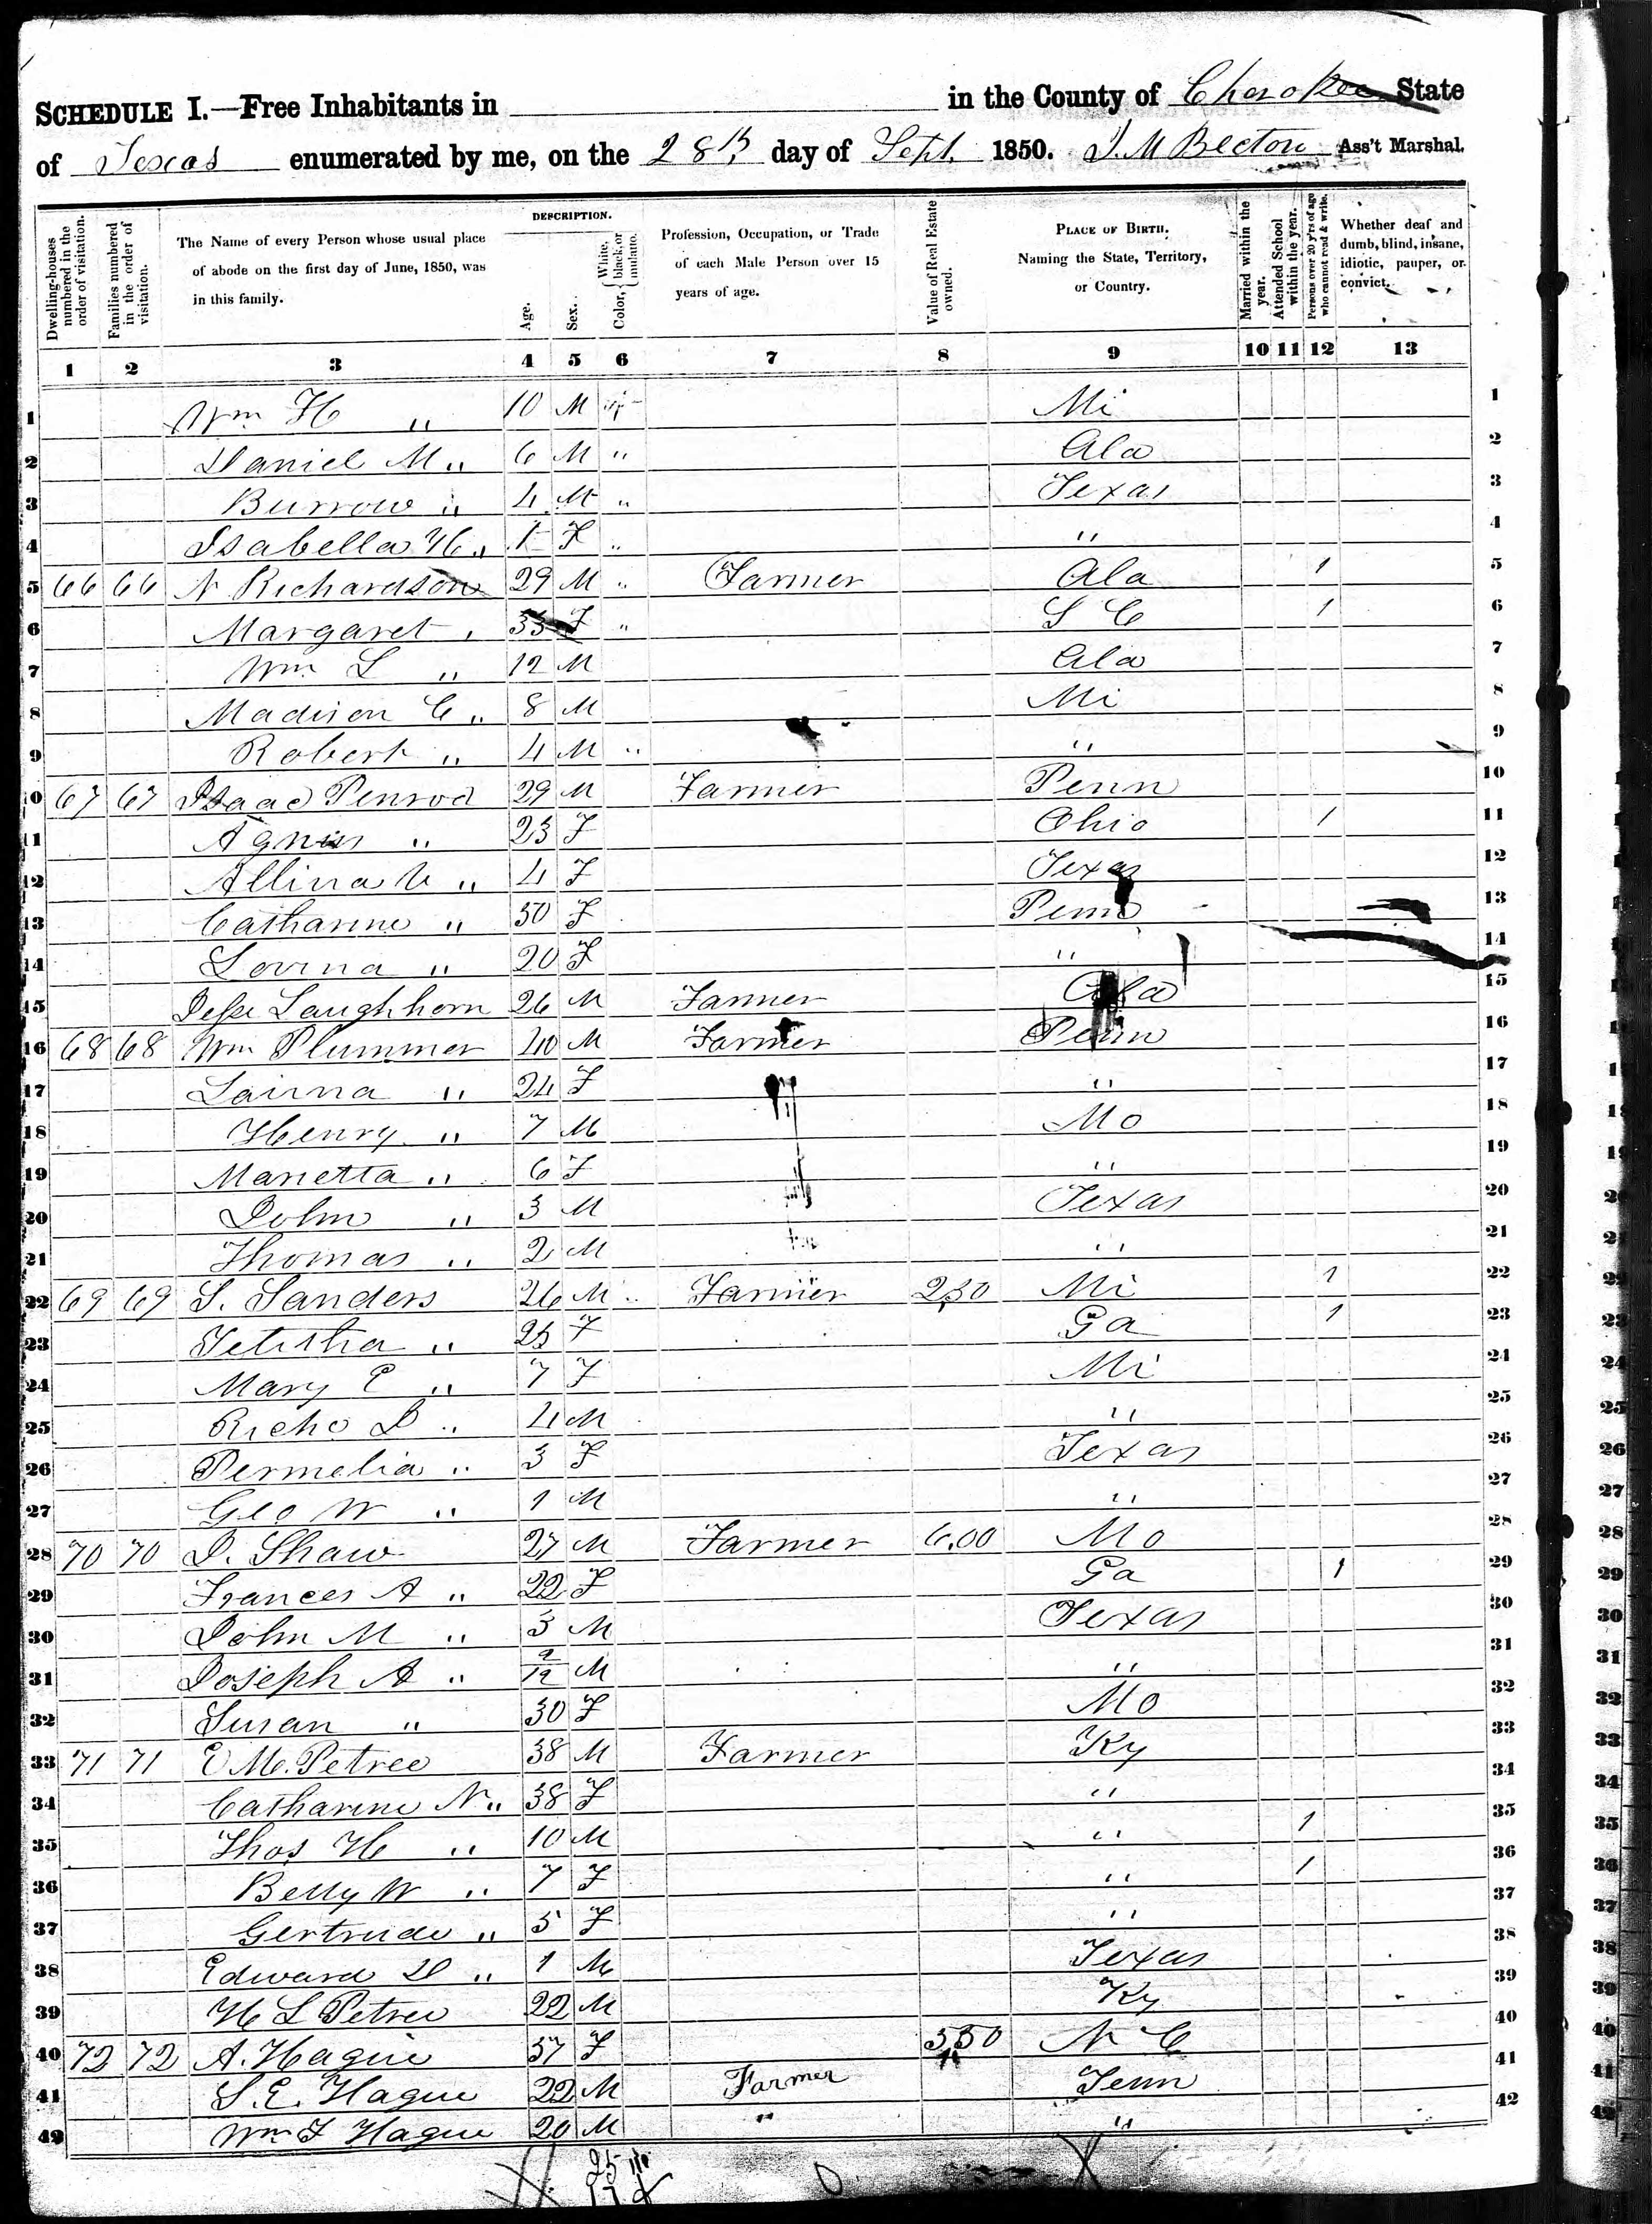 SCHEDULE I.—Free Inhabitants in in the County of Cherokee State
of Texas enumerated by me, on the 28th day of Sept. 1850. J. M Becton Ass't Marshal.
Dwelling-houses numbered in the order of visitation. Families numbered in the order of visitation. The Name of every Person whose usual place of abode on the first day of June, 1850, was in this family. DESCRIPTION. Age. Sex. Color, { White, black, or mulatto. Profession, Occupation, or Trade of each Male Person over 15 years of age. Value of Real Estate owned. PLACE OF BIRTH. Naming the State, Territory, or Country. Married within the year. Attended School within the year. Persons over 20 y'rs of age who cannot read & write. Whether deaf and dumb, blind, insane, idiotic, pauper, or convict.
1 2 3 4 5 6 7 8 9 10 11 12 13
1 Wm H " 10 M Mi 1
2 Daniel M " 6 M " Ala 2
3 Burrow " 4 M " Texas 3
4 Isabella H " 1 F " " 4
5 66 66 N Richardson 29 M " Farmer Ala 1 5
6 Margaret " 33 F " S C 1 6
7 Wm L " 12 M Ala 7
8 Madison C " 8 M Mi 8
9 Robert " 4 M " " 9
10 67 67 Isaac Penrod 29 M Farmer Penn 10
11 Agnes " 23 F Ohio 1 11
12 " 4 F Texas 12
13 Catharine " 50 F Penn 13
14 Lovina " 20 F " 14
15 Jesse Laughhorn 26 M Farmer Ala 15
16 68 68 Wm Plummer 40 M Farmer Penn 16
17 " 24 F " 17
18 Henry " 7 M Mo 18
19 Marietta " 6 F " 19
20 John " 3 M Texas 20
21 Thomas " 2 M " 21
22 69 69 S. Sanders 26 M " Farmer 250 Mi 1 22
23 " 25 F Ga 1 23
24 Mary E " 7 F Mi 24
25 D " 4 M " 25
26 Permelia " 3 F Texas 26
27 Geo W " 1 M " 27
28 70 70 J. Shaw 27 M Farmer 600 Mo 28
29 Frances A " 22 F Ga 1 29
30 John M " 3 M Texas 30
31 Joseph A " /12 M " 31
32 Susan " 30 F Mo 32
33 71 71 E M. Petree 38 M Farmer Ky 33
34 Catharine N " 38 F " 34
35 Thos H " 10 M " 1 35
36 Betty W " 7 F " 1 36
37 Gertrude " 5 F " 37
38 Edward D " 1 M Texas 38
39 H L Petree 22 M Ky 39
40 72 72 A. Hague 57 F 550 N C 40
41 S. E. Hague 22 M Farmer Tenn 41
42 Wm F Hague 20 M " " 42
25
17